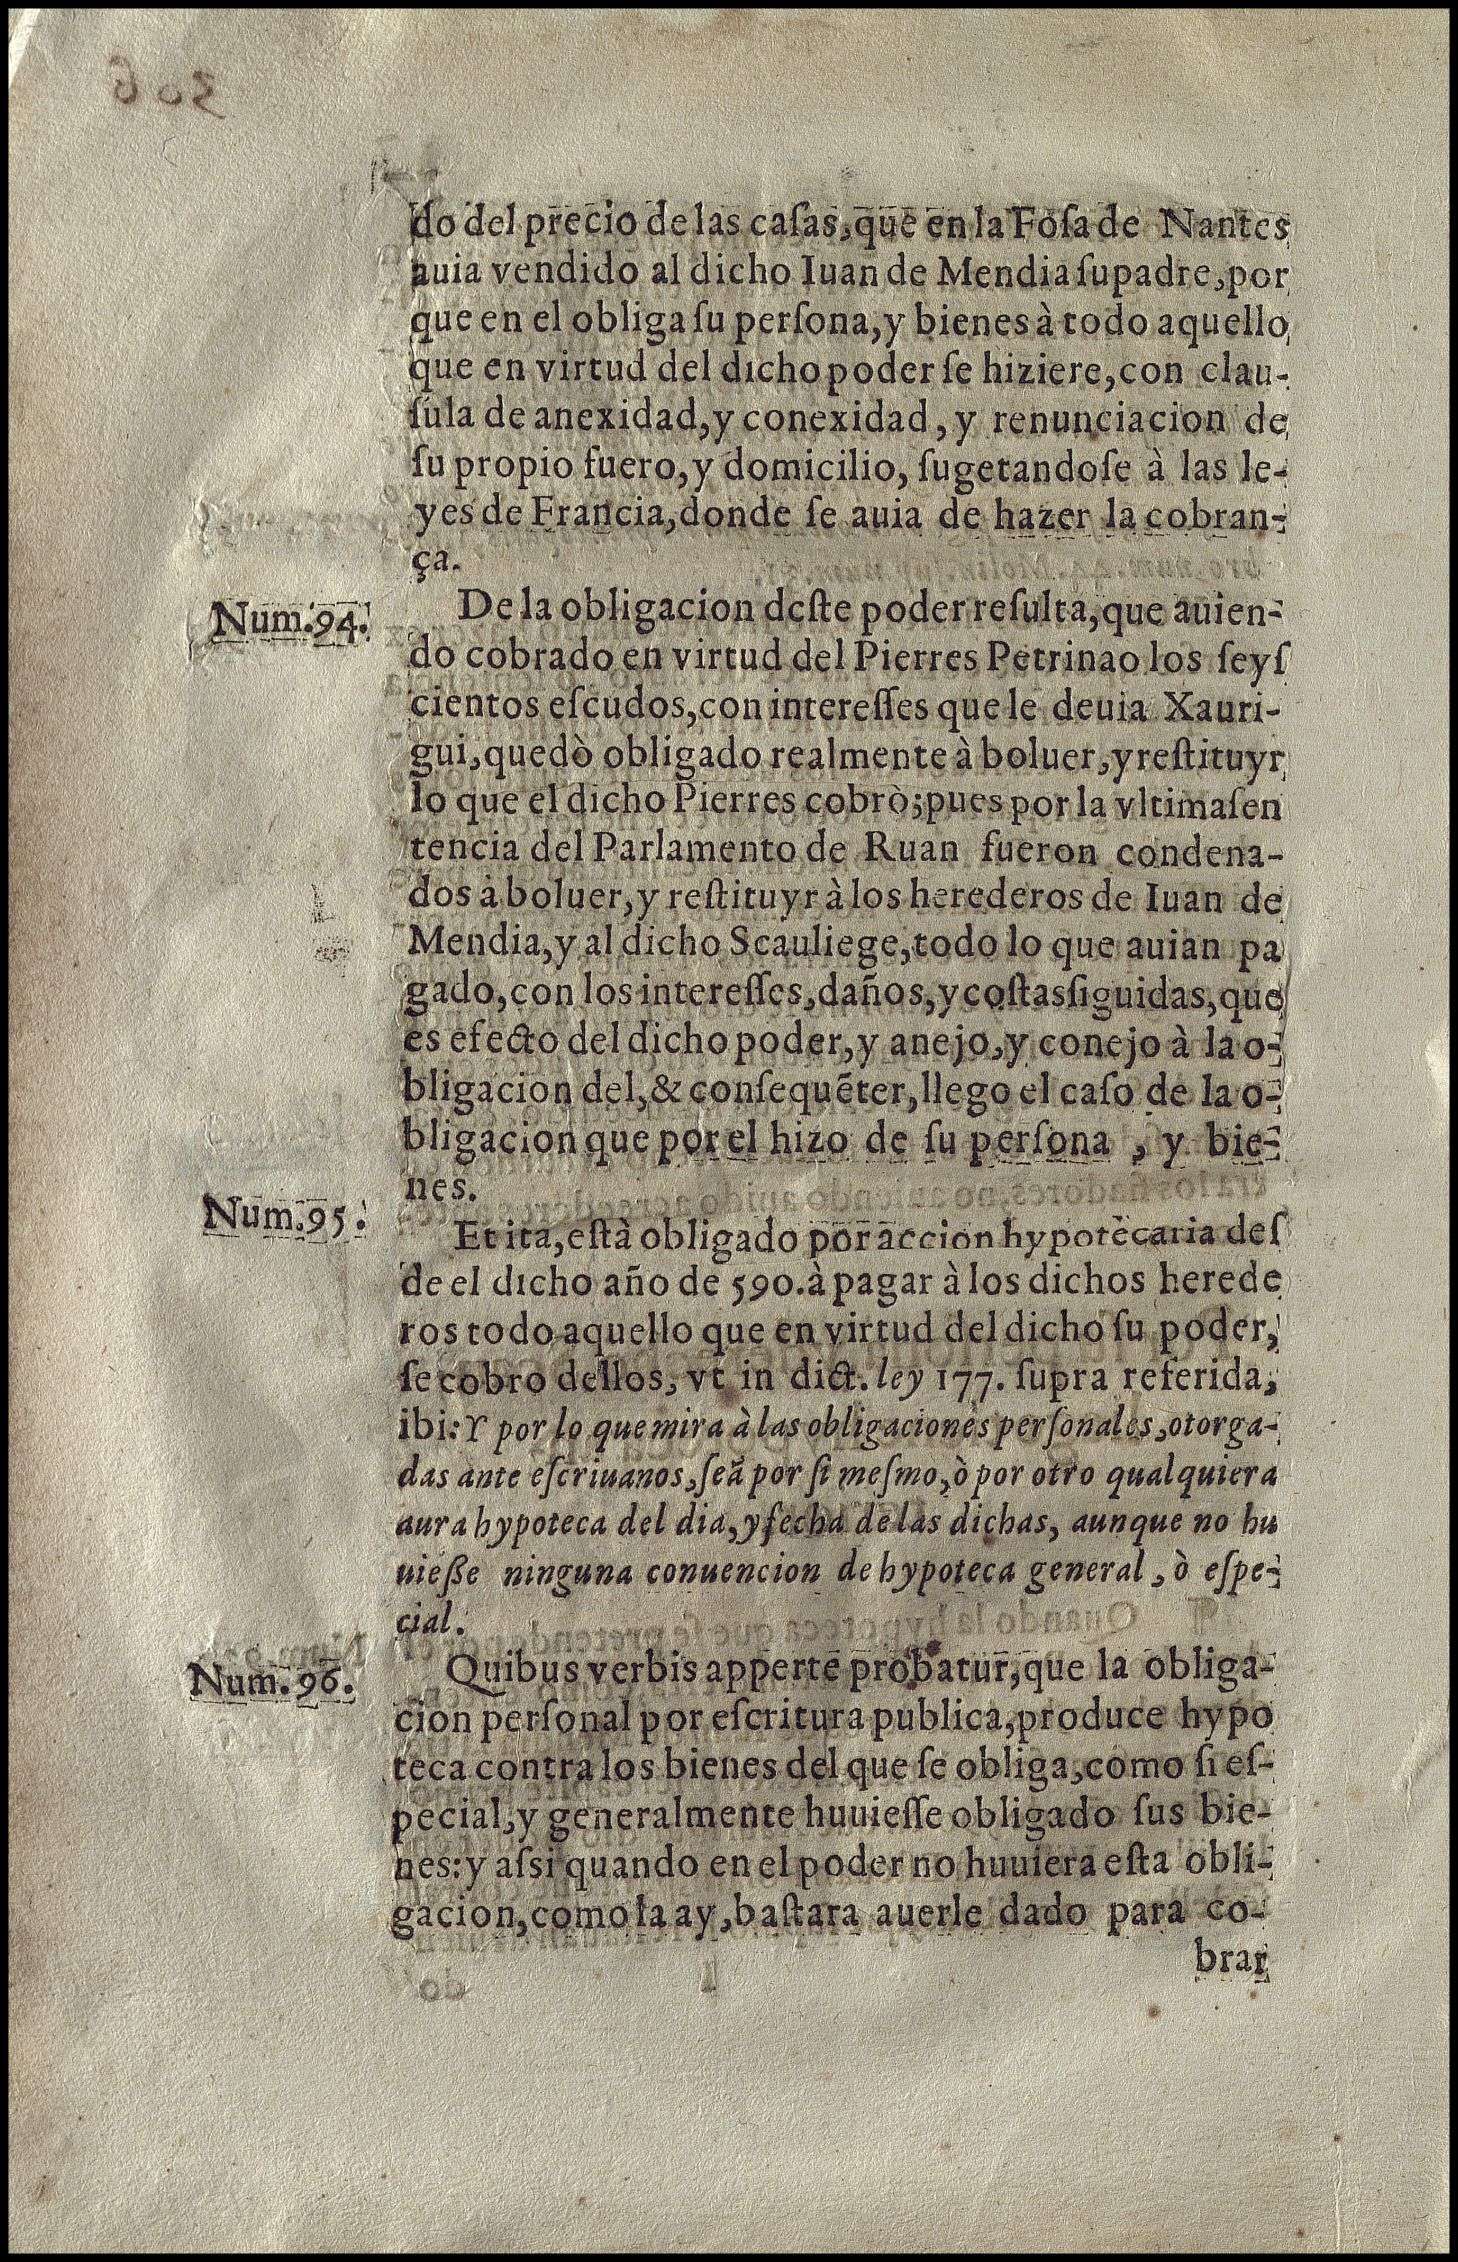 do del precio de las caſas, que en la Foſa de Nantes
auia vendido al dicho Iuan de Mendia ſu padre, por
que en el obliga ſu perſona, y bienes à todo aquello
que en virtud del dicho poder ſe hiziere, con clau-
ſula de anexidad, y conexidad, y renunciacion de
ſu propio fuero, y domicilio, ſugetandoſe à las le-
yes de Francia, donde ſe auia de hazer la cobran-
ça.
Num. 94.
De la obligacion deſte poder reſulta, que auien-
do cobrado en virtud del Pierres Petrinao los ſeyſ
cientos eſcudos, con intereſſes que le deuia Xauri-
gui, quedò obligado realmente à boluer, y reſtituyr
lo que el dicho Pierres cobrò; pues por la vltima ſen
tencia del Parlamento de Ruan fueron condena-
dos à boluer, y reſtituyr à los herederos de Iuan de
Mendia, y al dicho Scauliege, todo lo que auian pa
gado, con los intereſſes, daños, y coſtas ſiguidas, que
es efecto del dicho poder, y anejo, y conejo à la o-
bligacion del, & conſequẽter, llego el caſo de la o-
bligacion que por el hizo de ſu perſona, y bie-
nes.
Num. 95.
Et ita, eſtà obligado por accion hypotecaria deſ
de el dicho año de 590. à pagar à los dichos herede
ros todo aquello que en virtud del dicho ſu poder,
ſe cobro dellos, vt in dict. ley 177. ſupra referida,
ibi: Y por lo que mira à las obligaciones perſonales, otorga-
das ante eſcriuanos, ſeã por ſi meſmo, ò por otro qualquiera
aura hypoteca del dia, y fecha de las dichas, aunque no hu
uieße ninguna conuencion de hypoteca general, ò eſpe-
cial.
Num. 96.
Quibus verbis apperte probatur, que la obliga-
cion perſonal por eſcritura publica, produce hypo
teca contra los bienes del que ſe obliga, como ſi eſ-
pecial, y generalmente huuieſſe obligado ſus bie-
nes: y aſsi quando en el poder no huuiera eſta obli-
gacion, como la ay, baſtara auerle dado para co-
brar